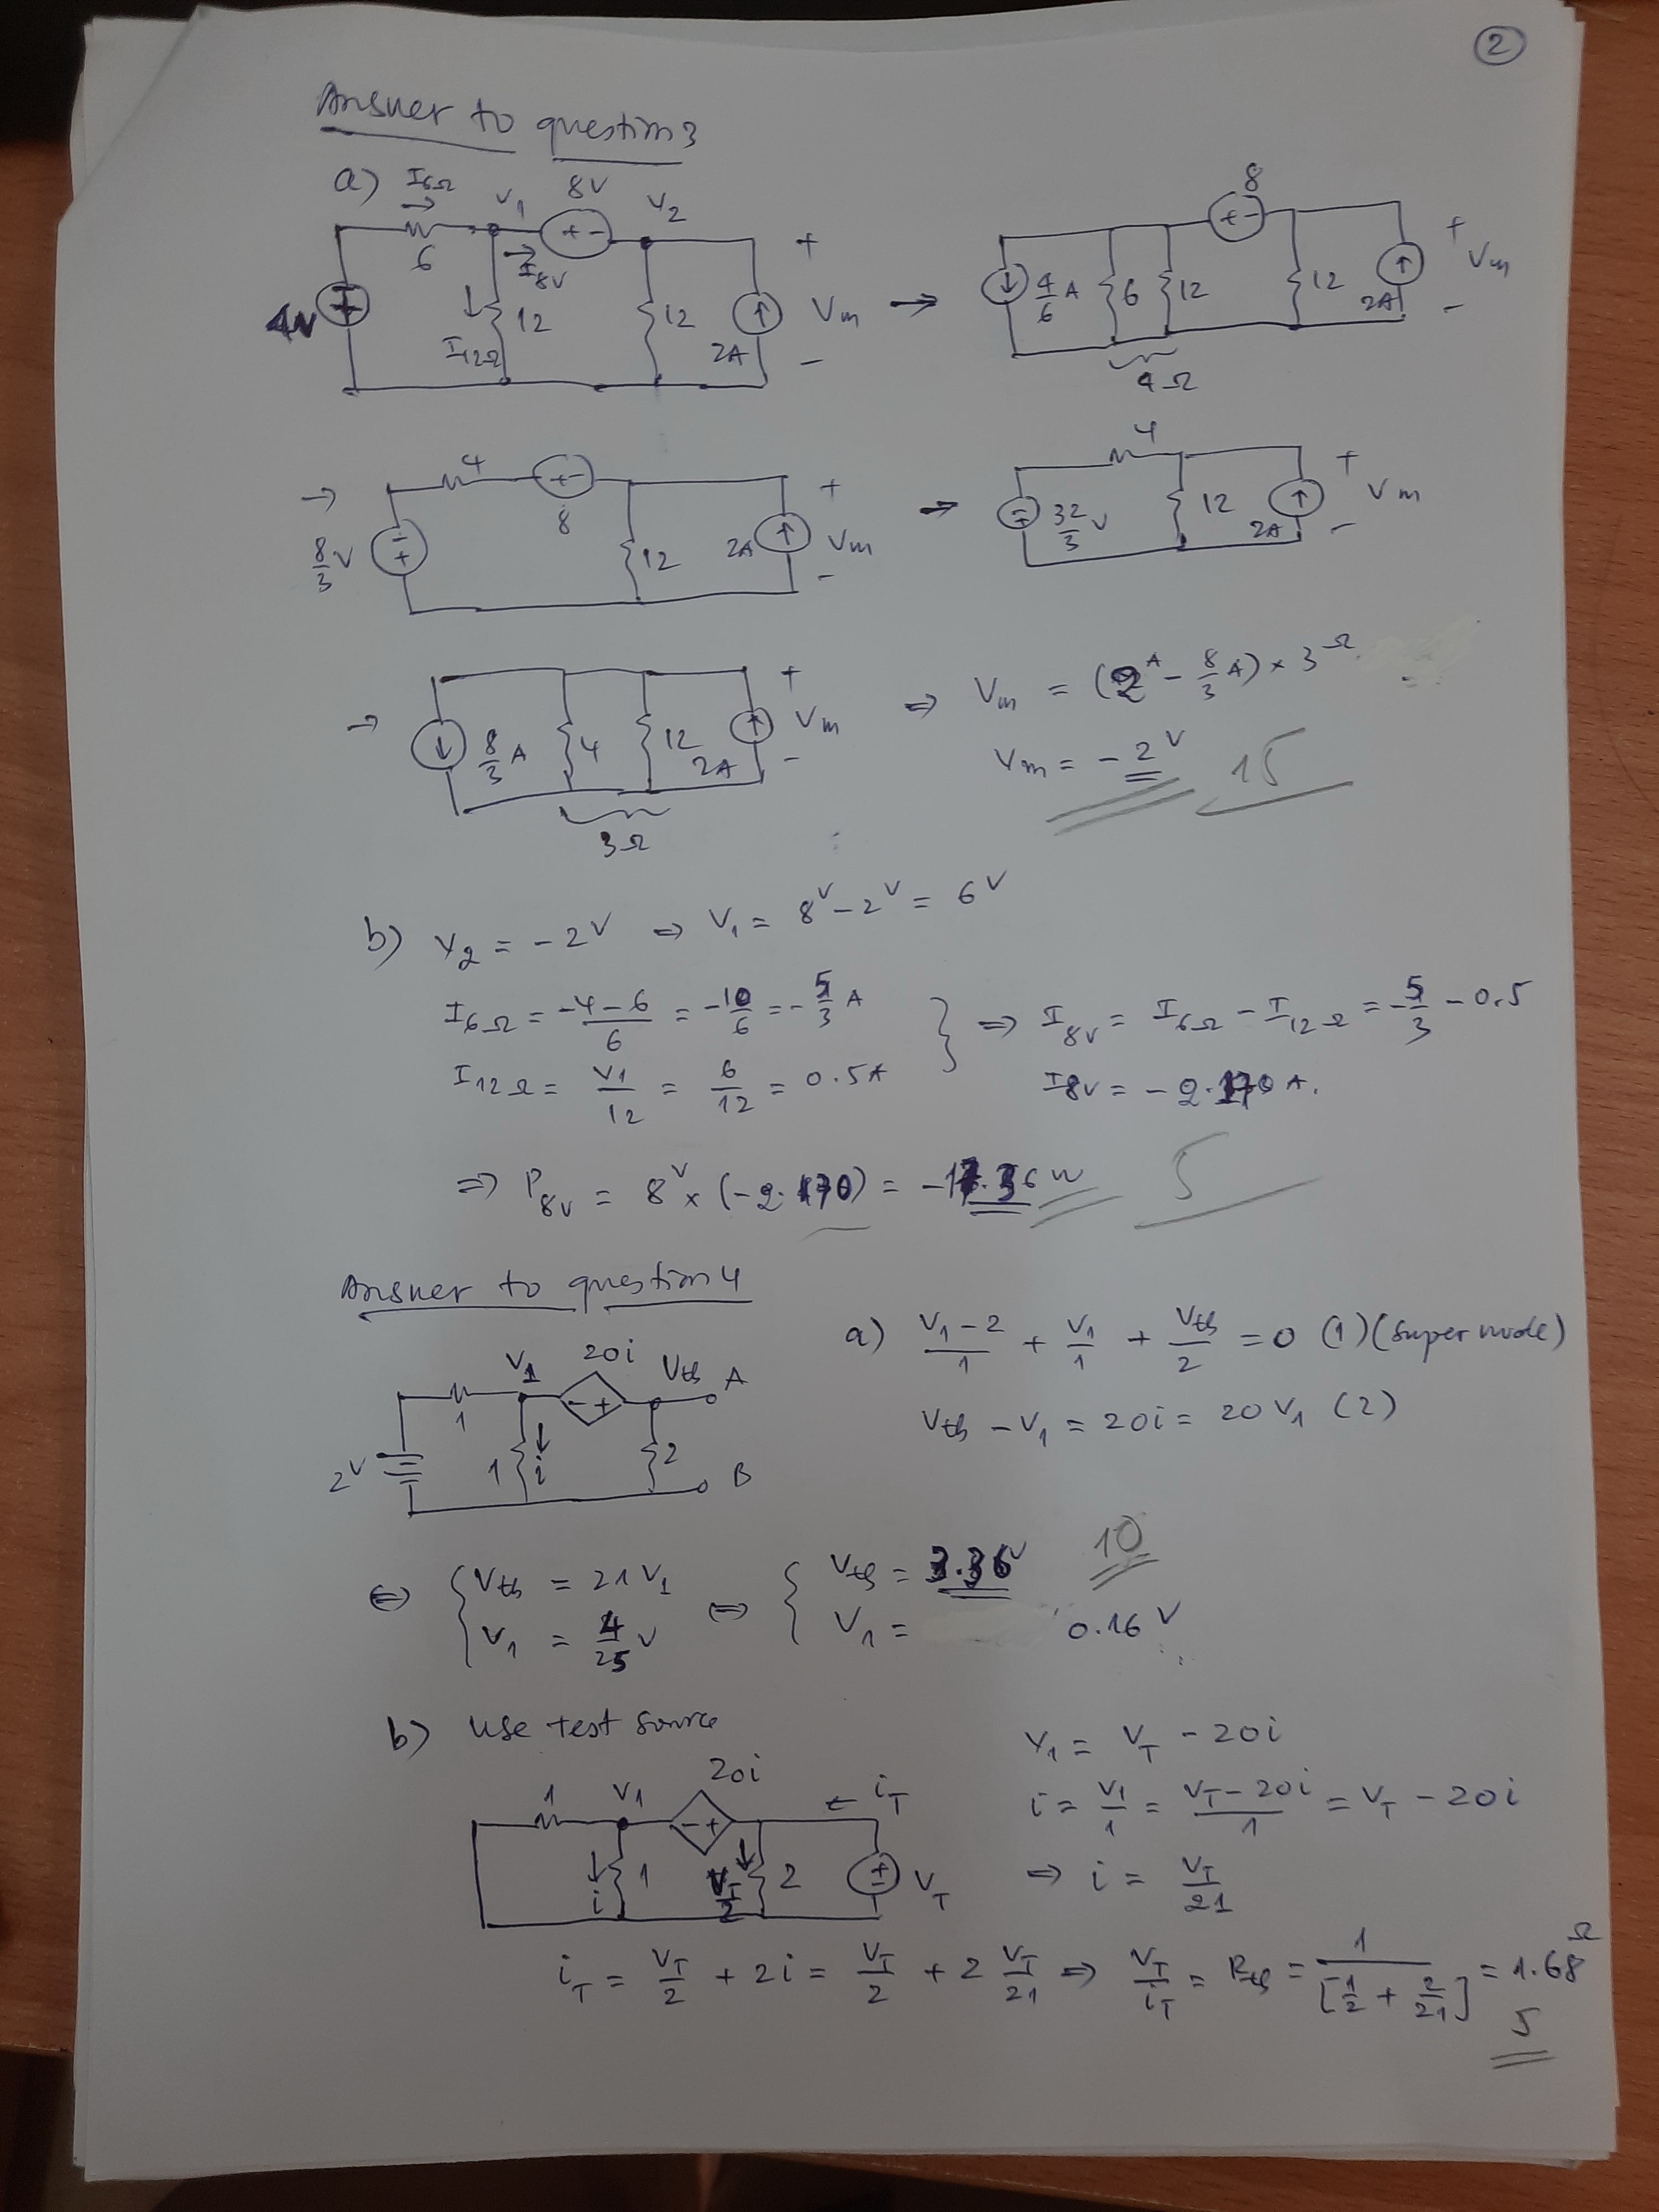 2
Answer to question 3
a) I6Ω V1 8V V2
6 + - +
I8V
4V 12 12 Vm →
I12Ω 2A -
8
+ - +
4/6 A 6 12 12 Vm
2A -
4Ω
→ 4 + - +
8
8/3 V 12 2A Vm
-
→ 4 +
32/3 V 12 Vm
2A -
→ +
8/3 A 4 12 Vm
2A -
3Ω
⇒ Vm = (2A - 8/3 A) × 3Ω
Vm = -2V 15
b) V2 = -2V ⇒ V1 = 8V - 2V = 6V
I6Ω = -4-6/6 = -10/6 = -5/3 A } ⇒ I8V = I6Ω - I12Ω = -5/3 - 0.5
I12Ω = V1/12 = 6/12 = 0.5A I8V = -2.170 A.
⇒ P8V = 8V × (-2.170) = -17.36 W 5
Answer to question 4
V1 20i Vth A
1 - +
2V 1 i 2 B
a) V1-2/1 + V1/1 + Vth/2 = 0 (1) (super node)
Vth - V1 = 20i = 20V1 (2)
⇔ { Vth = 21V1 ⇔ { Vth = 3.36V 10
V1 = 4/25 V V1 = 0.16 V
b) Use test source
1 V1 20i ← iT
- +
i 1 VT/2 2 VT
V1 = VT - 20i
i = V1/1 = VT-20i/1 = VT - 20i
⇒ i = VT/21
iT = VT/2 + 2i = VT/2 + 2 VT/21 ⇒ VT/iT = Rth = 1/[1/2 + 2/21] = 1.68Ω
5